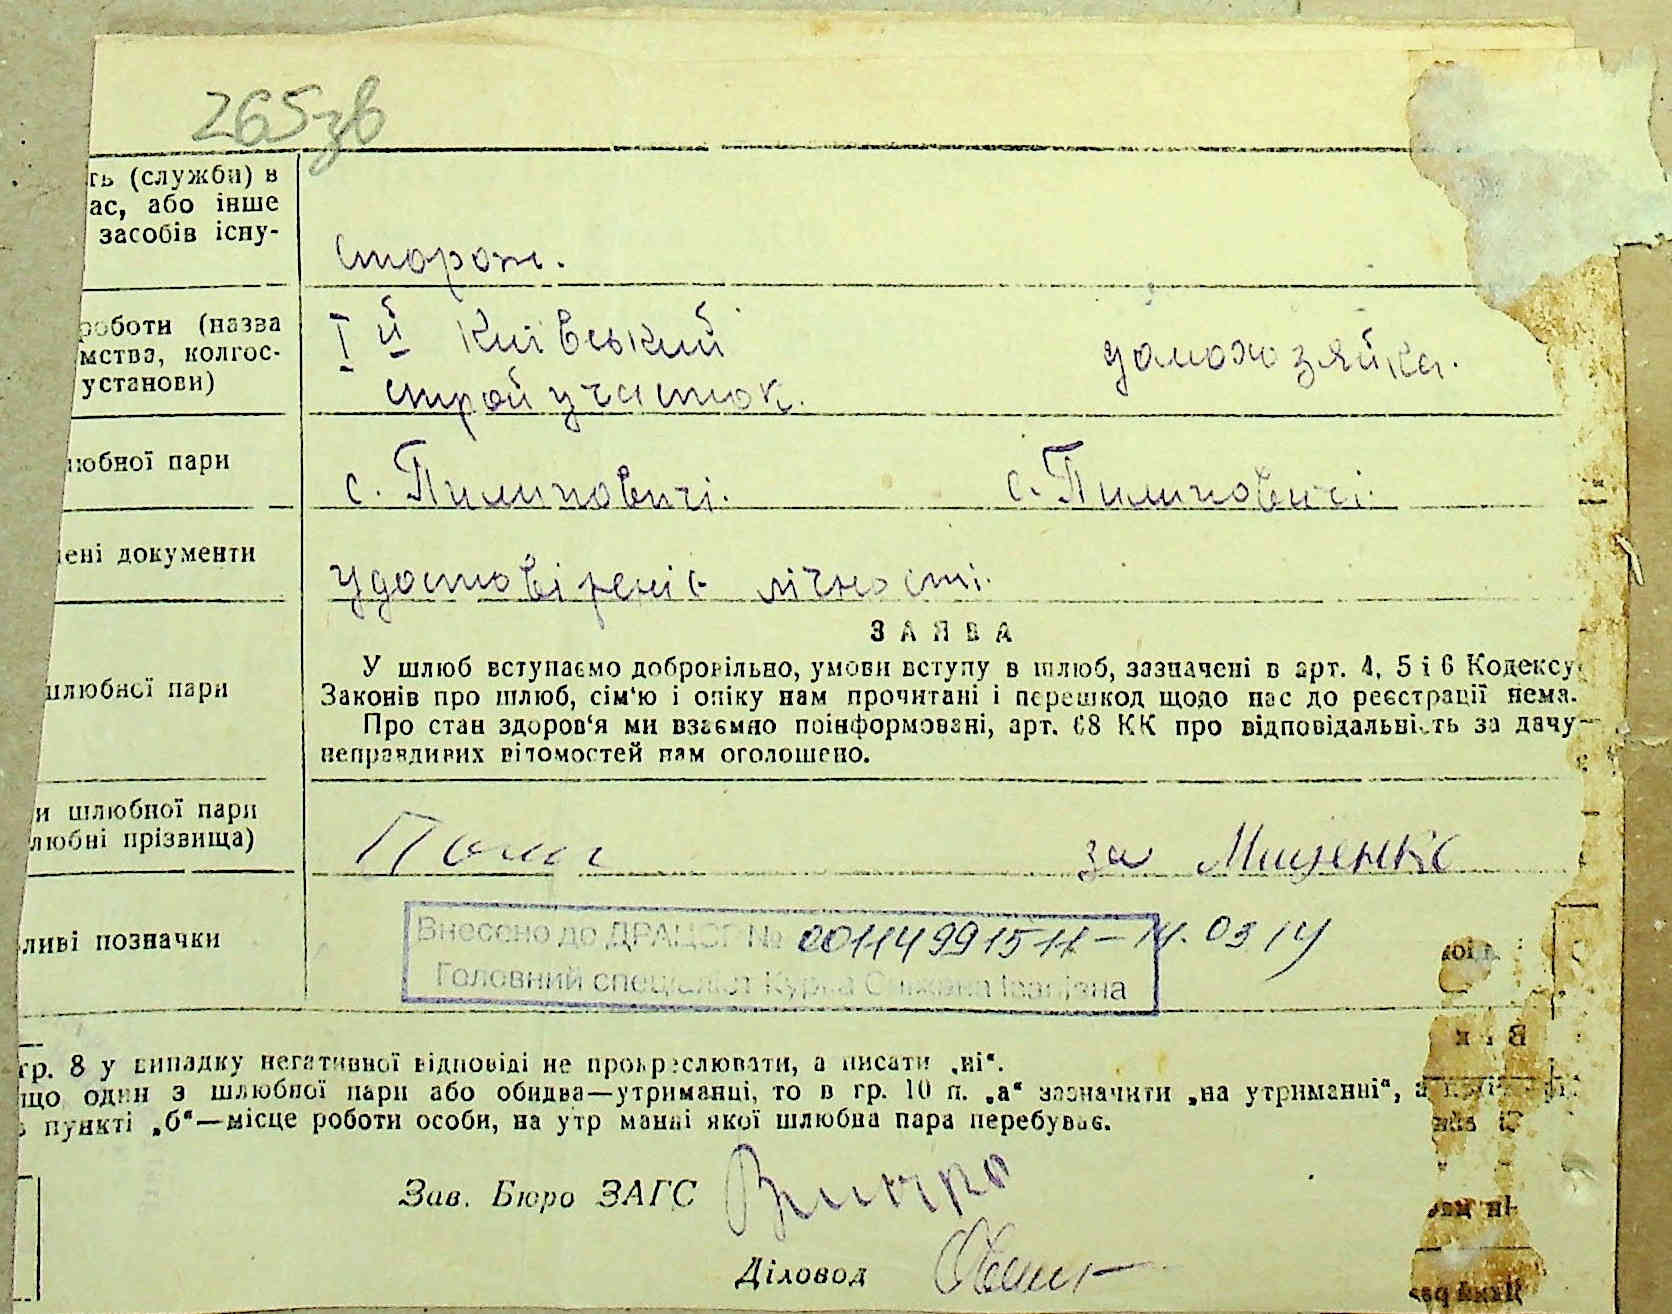 265зв
ть (служби) в
ас, або інше
засобів існу-
сторож.
роботи (назва
мства, колгос-
установи)
Iй Київський
стройучасток.
домохозяйка.
любної пари
с. Пилиповичі.
с. Пилиповичі.
ені документи
удостовіреніє лічності.
ЗАЯВА
шлюбної пари
У шлюб вступаємо добровільно, умови вступу в шлюб, зазначені в арт. 4, 5 і 6 Кодексу
Законів про шлюб, сім'ю і опіку нам прочитані і перешкод щодо нас до реєстрації нема.
Про стан здоров'я ми взаємно поінформовані, арт. 68 КК про відповідальність за дачу
неправдивих відомостей нам оголошено.
и шлюбної пари
любні прізвища)
за
ливі позначки
Внесено до ДРАЦСГ № 00114991511 – 14.03 14
Головний спеціаліст Іванівна
гр. 8 у випадку негативної відповіді не прокреслювати, а писати „ні“.
що один з шлюбної пари або обидва—утриманці, то в гр. 10 п. „а“ зазначити „на утриманні“, а
пункті „б“—місце роботи особи, на утр манні якої шлюбна пара перебуває.
Зав. Бюро ЗАГС
Діловод